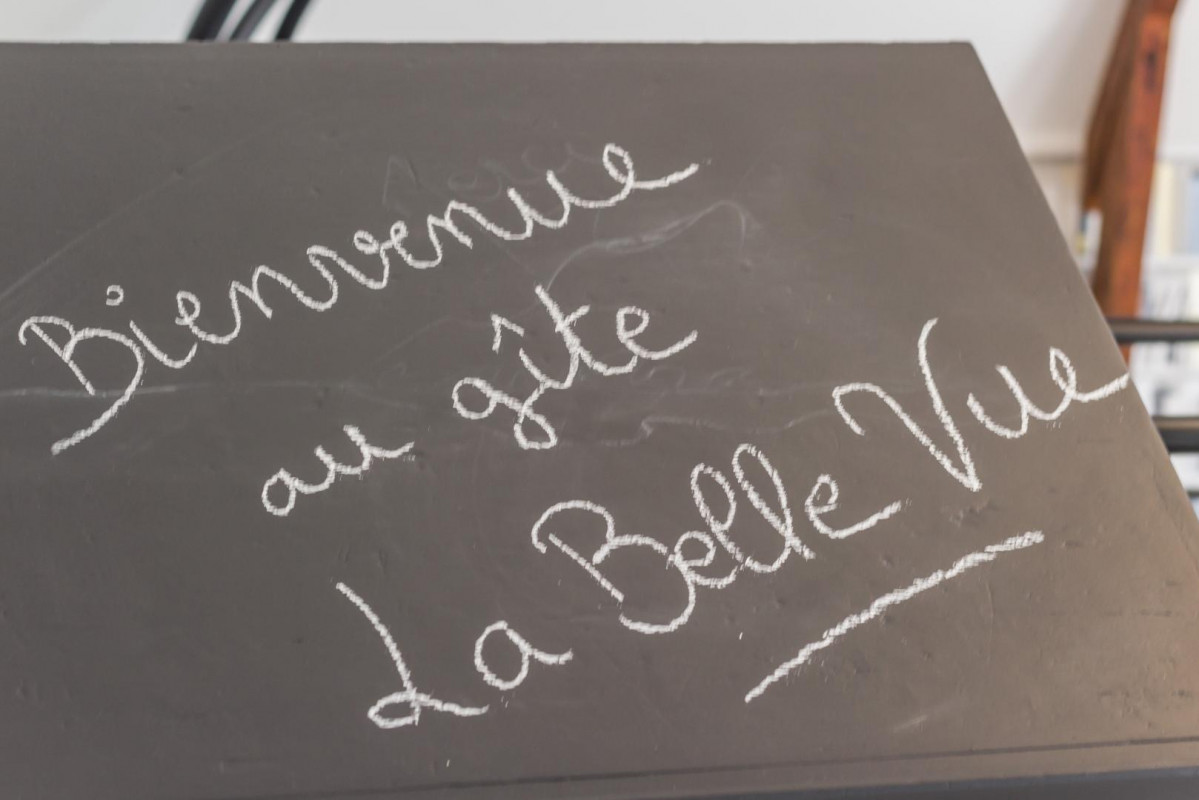 Bienvenue
au gîte
La Belle Vue